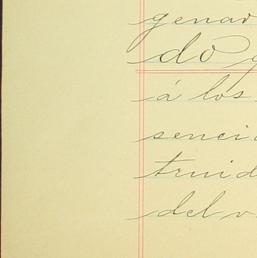 genar
do y
á los
senci
truid
del v